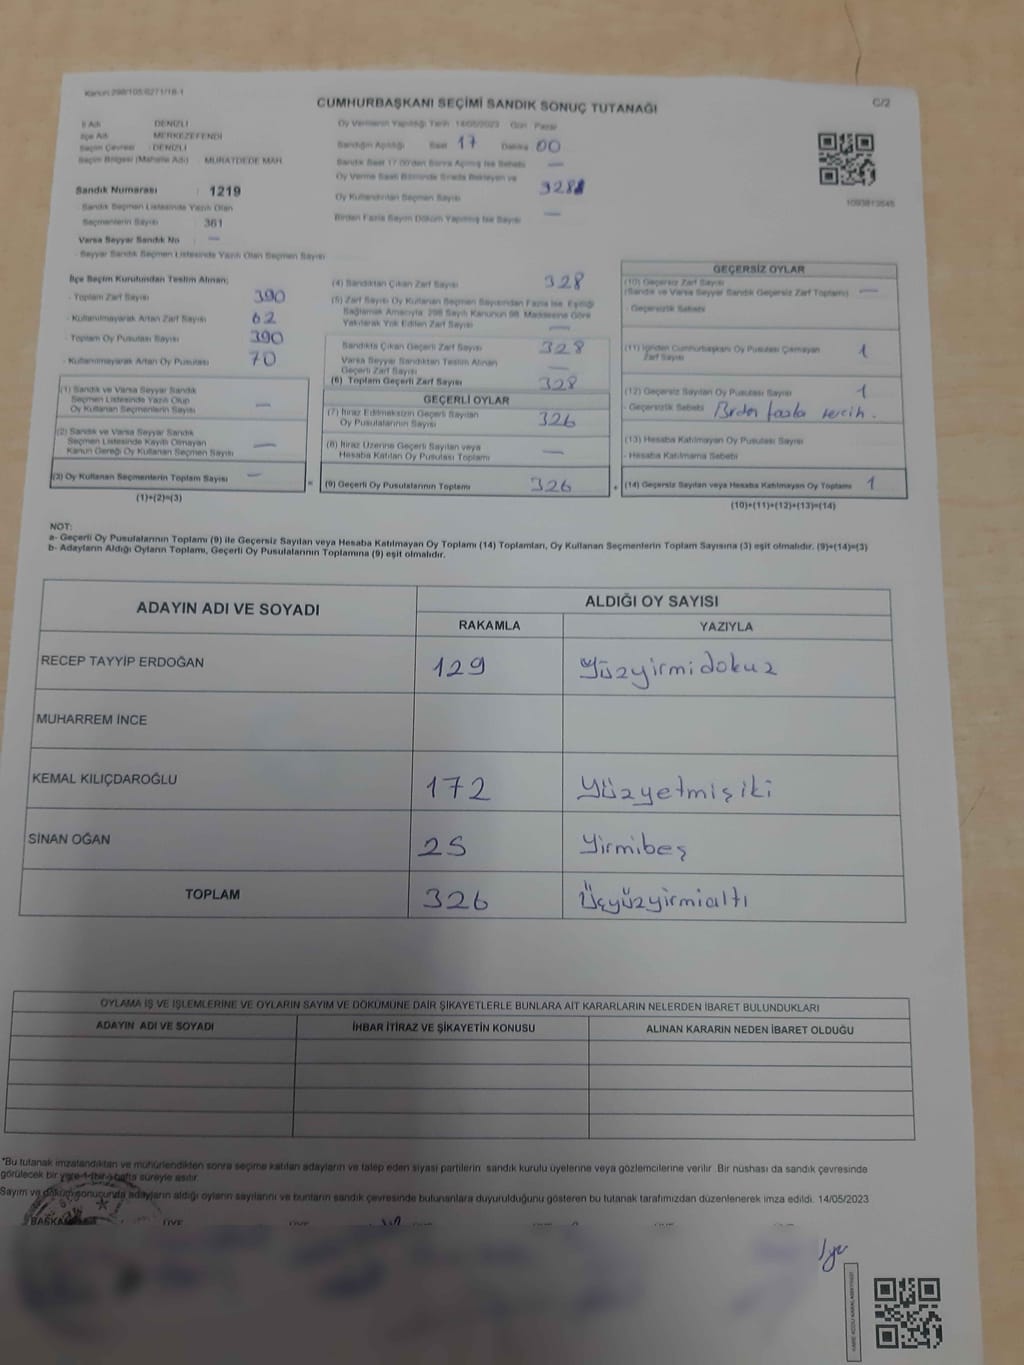 Kanun 298/105-6271/16-1
CUMHURBAŞKANI SEÇİMİ SANDIK SONUÇ TUTANAĞI
C/2
İl Adı : DENİZLİ
İlçe Adı : MERKEZEFENDİ
Seçim Çevresi : DENİZLİ
Seçim Bölgesi (Mahalle Adı) : MURATDEDE MAH.
Sandık Numarası : 1219
Sandık Seçmen Listesinde Yazılı Olan
Seçmenlerin Sayısı : 361
Varsa Seyyar Sandık No : —
Seyyar Sandık Seçmen Listesinde Yazılı Olan Seçmen Sayısı
Oy Vermenin Yapıldığı Tarih 14/05/2023 Gün Pazar
Sandığın Açıldığı Saat 17 Dakika 00
Sandık Saat 17.00'den Sonra Açılmış İse Sebebi —
Oy Verme Saati Bitiminde Sırada Bekleyen ve
Oy Kullandırılan Seçmen Sayısı 328
Birden Fazla Sayım Döküm Yapılmış İse Sayısı —
1093813645
İlçe Seçim Kurulundan Teslim Alınan;
- Toplam Zarf Sayısı 390
- Kullanılmayarak Artan Zarf Sayısı 62
- Toplam Oy Pusulası Sayısı 390
- Kullanılmayarak Artan Oy Pusulası 70
(1) Sandık ve Varsa Seyyar Sandık
Seçmen Listesinde Yazılı Olup
Oy Kullanan Seçmenlerin Sayısı —
(2) Sandık ve Varsa Seyyar Sandık
Seçmen Listesinde Kayıtlı Olmayan
Kanun Gereği Oy Kullanan Seçmen Sayısı —
(3) Oy Kullanan Seçmenlerin Toplam Sayısı —
(1)+(2)=(3)
(4) Sandıktan Çıkan Zarf Sayısı 328
(5) Zarf Sayısı Oy Kullanan Seçmen Sayısından Fazla İse, Eşitliği
Sağlamak Amacıyla, 298 Sayılı Kanunun 98. Maddesine Göre
Yakılarak Yok Edilen Zarf Sayısı —
Sandıkta Çıkan Geçerli Zarf Sayısı 328
Varsa Seyyar Sandıktan Teslim Alınan
Geçerli Zarf Sayısı —
(6) Toplam Geçerli Zarf Sayısı 328
GEÇERLİ OYLAR
(7) İtiraz Edilmeksizin Geçerli Sayılan
Oy Pusulalarının Sayısı 326
(8) İtiraz Üzerine Geçerli Sayılan veya
Hesaba Katılan Oy Pusulası Toplamı —
= (9) Geçerli Oy Pusulalarının Toplamı 326 +
GEÇERSİZ OYLAR
(10) Geçersiz Zarf Sayısı
(Sandık ve Varsa Seyyar Sandık Geçersiz Zarf Toplamı) —
- Geçersizlik Sebebi
(11) İçinden Cumhurbaşkanı Oy Pusulası Çıkmayan
Zarf Sayısı 1
(12) Geçersiz Sayılan Oy Pusulası Sayısı 1
- Geçersizlik Sebebi Birden fazla tercih.
(13) Hesaba Katılmayan Oy Pusulası Sayısı
- Hesaba Katılmama Sebebi
(14) Geçersiz Sayılan veya Hesaba Katılmayan Oy Toplamı 1
(10)+(11)+(12)+(13)=(14)
NOT:
a- Geçerli Oy Pusulalarının Toplamı (9) ile Geçersiz Sayılan veya Hesaba Katılmayan Oy Toplamı (14) Toplamları, Oy Kullanan Seçmenlerin Toplam Sayısına (3) eşit olmalıdır. (9)+(14)=(3)
b- Adayların Aldığı Oyların Toplamı, Geçerli Oy Pusulalarının Toplamına (9) eşit olmalıdır.
ADAYIN ADI VE SOYADI
ALDIĞI OY SAYISI
RAKAMLA YAZIYLA
RECEP TAYYİP ERDOĞAN 129 Yüzyirmidokuz
MUHARREM İNCE
KEMAL KILIÇDAROĞLU 172 Yüzyetmişiki
SİNAN OĞAN 25 Yirmibeş
TOPLAM 326 Üçyüzyirmialtı
OYLAMA İŞ VE İŞLEMLERİNE VE OYLARIN SAYIM VE DÖKÜMÜNE DAİR ŞİKAYETLERLE BUNLARA AİT KARARLARIN NELERDEN İBARET BULUNDUKLARI
ADAYIN ADI VE SOYADI İHBAR İTİRAZ VE ŞİKAYETİN KONUSU ALINAN KARARIN NEDEN İBARET OLDUĞU
*Bu tutanak imzalandıktan ve mühürlendikten sonra seçime katılan adayların ve talep eden siyasi partilerin sandık kurulu üyelerine veya gözlemcilerine verilir. Bir nüshası da sandık çevresinde
görülecek bir yere 1 (bir) hafta süreyle asılır.
Sayım ve döküm sonucunda adayların aldığı oyların sayılarını ve bunların sandık çevresinde bulunanlara duyurulduğunu gösteren bu tutanak tarafımızdan düzenlenerek imza edildi. 14/05/2023
BAŞKAN ÜYE ÜYE ÜYE ÜYE ÜYE ÜYE